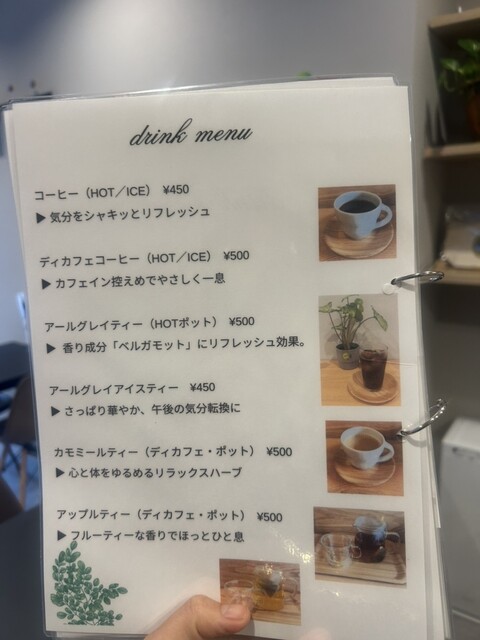 drink menu
コーヒー（HOT／ICE） ¥450
▶ 気分をシャキッとリフレッシュ
ディカフェコーヒー（HOT／ICE） ¥500
▶ カフェイン控えめでやさしく一息
アールグレイティー（HOTポット） ¥500
▶ 香り成分「ベルガモット」にリフレッシュ効果。
アールグレイアイスティー ¥450
▶ さっぱり華やか、午後の気分転換に
カモミールティー（ディカフェ・ポット） ¥500
▶ 心と体をゆるめるリラックスハーブ
アップルティー（ディカフェ・ポット） ¥500
▶ フルーティーな香りでほっとひと息